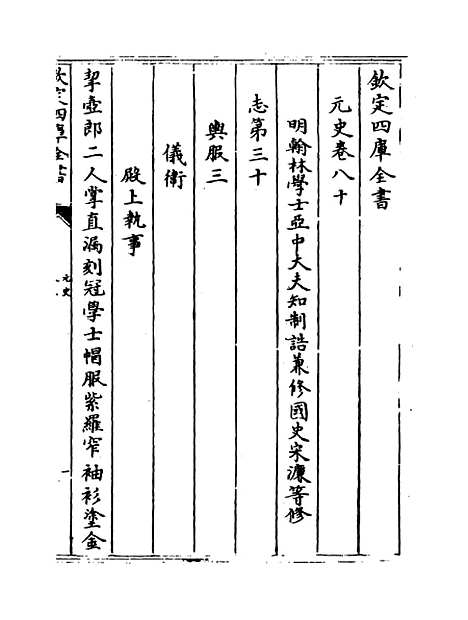 欽定四庫全書
元史卷八十
明翰林學士亞中大夫知制誥兼修國史宋濂等修
志第三十
輿服三
儀衛
殿上執事
挈壺郎二人掌直漏刻冠學士帽服紫羅窄袖衫塗金
欽定四庫全書
元史
一